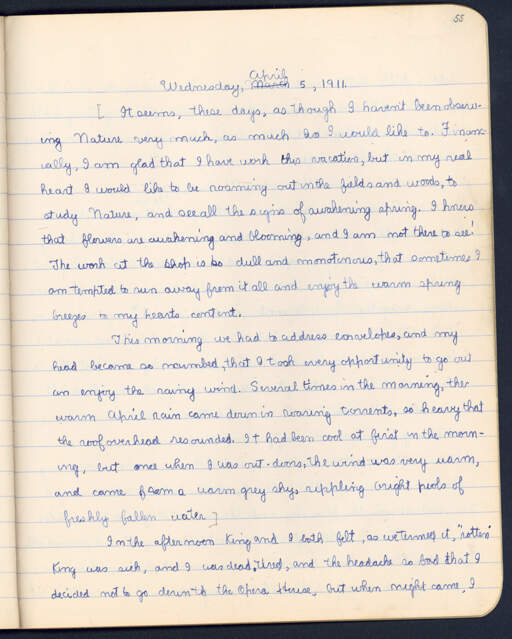 55
April
Wednesday, March 5, 1911.
[ It seems, these days, as though I haven't been observ-
ing Nature very much, as much as I would like to. Financ-
ially, I am glad that I have work this vacation, but in my real
heart I would like to be roaming out in the fields and woods, to
study Nature, and see all the signs of awakening spring. I know
that flowers are awakening and blooming, and I am not there to see!
The work at the shop is so dull and monotinous, that sometimes I
am tempted to run away from it all and enjoy the warm spring
breezes to my hearts content.
This morning we had to address envelopes, and my
head became so numbed, that I took every opportunity to go out
an enjoy the rainy wind. Several times in the morning, the
warm April rain came down in roaring torrents, so heavy that
the roof overhead resounded. It had been cool at first in the morn-
ing, but once when I was out-doors, the wind was very warm,
and came from a warm grey sky, rippling bright pools of
freshly fallen water.]
In the afternoon King and I both felt, as we termed it, "rotten"
King was sick, and I was dead, tired, and the headache so bad that I
decided not to go down to the Opera House, but when night came, I